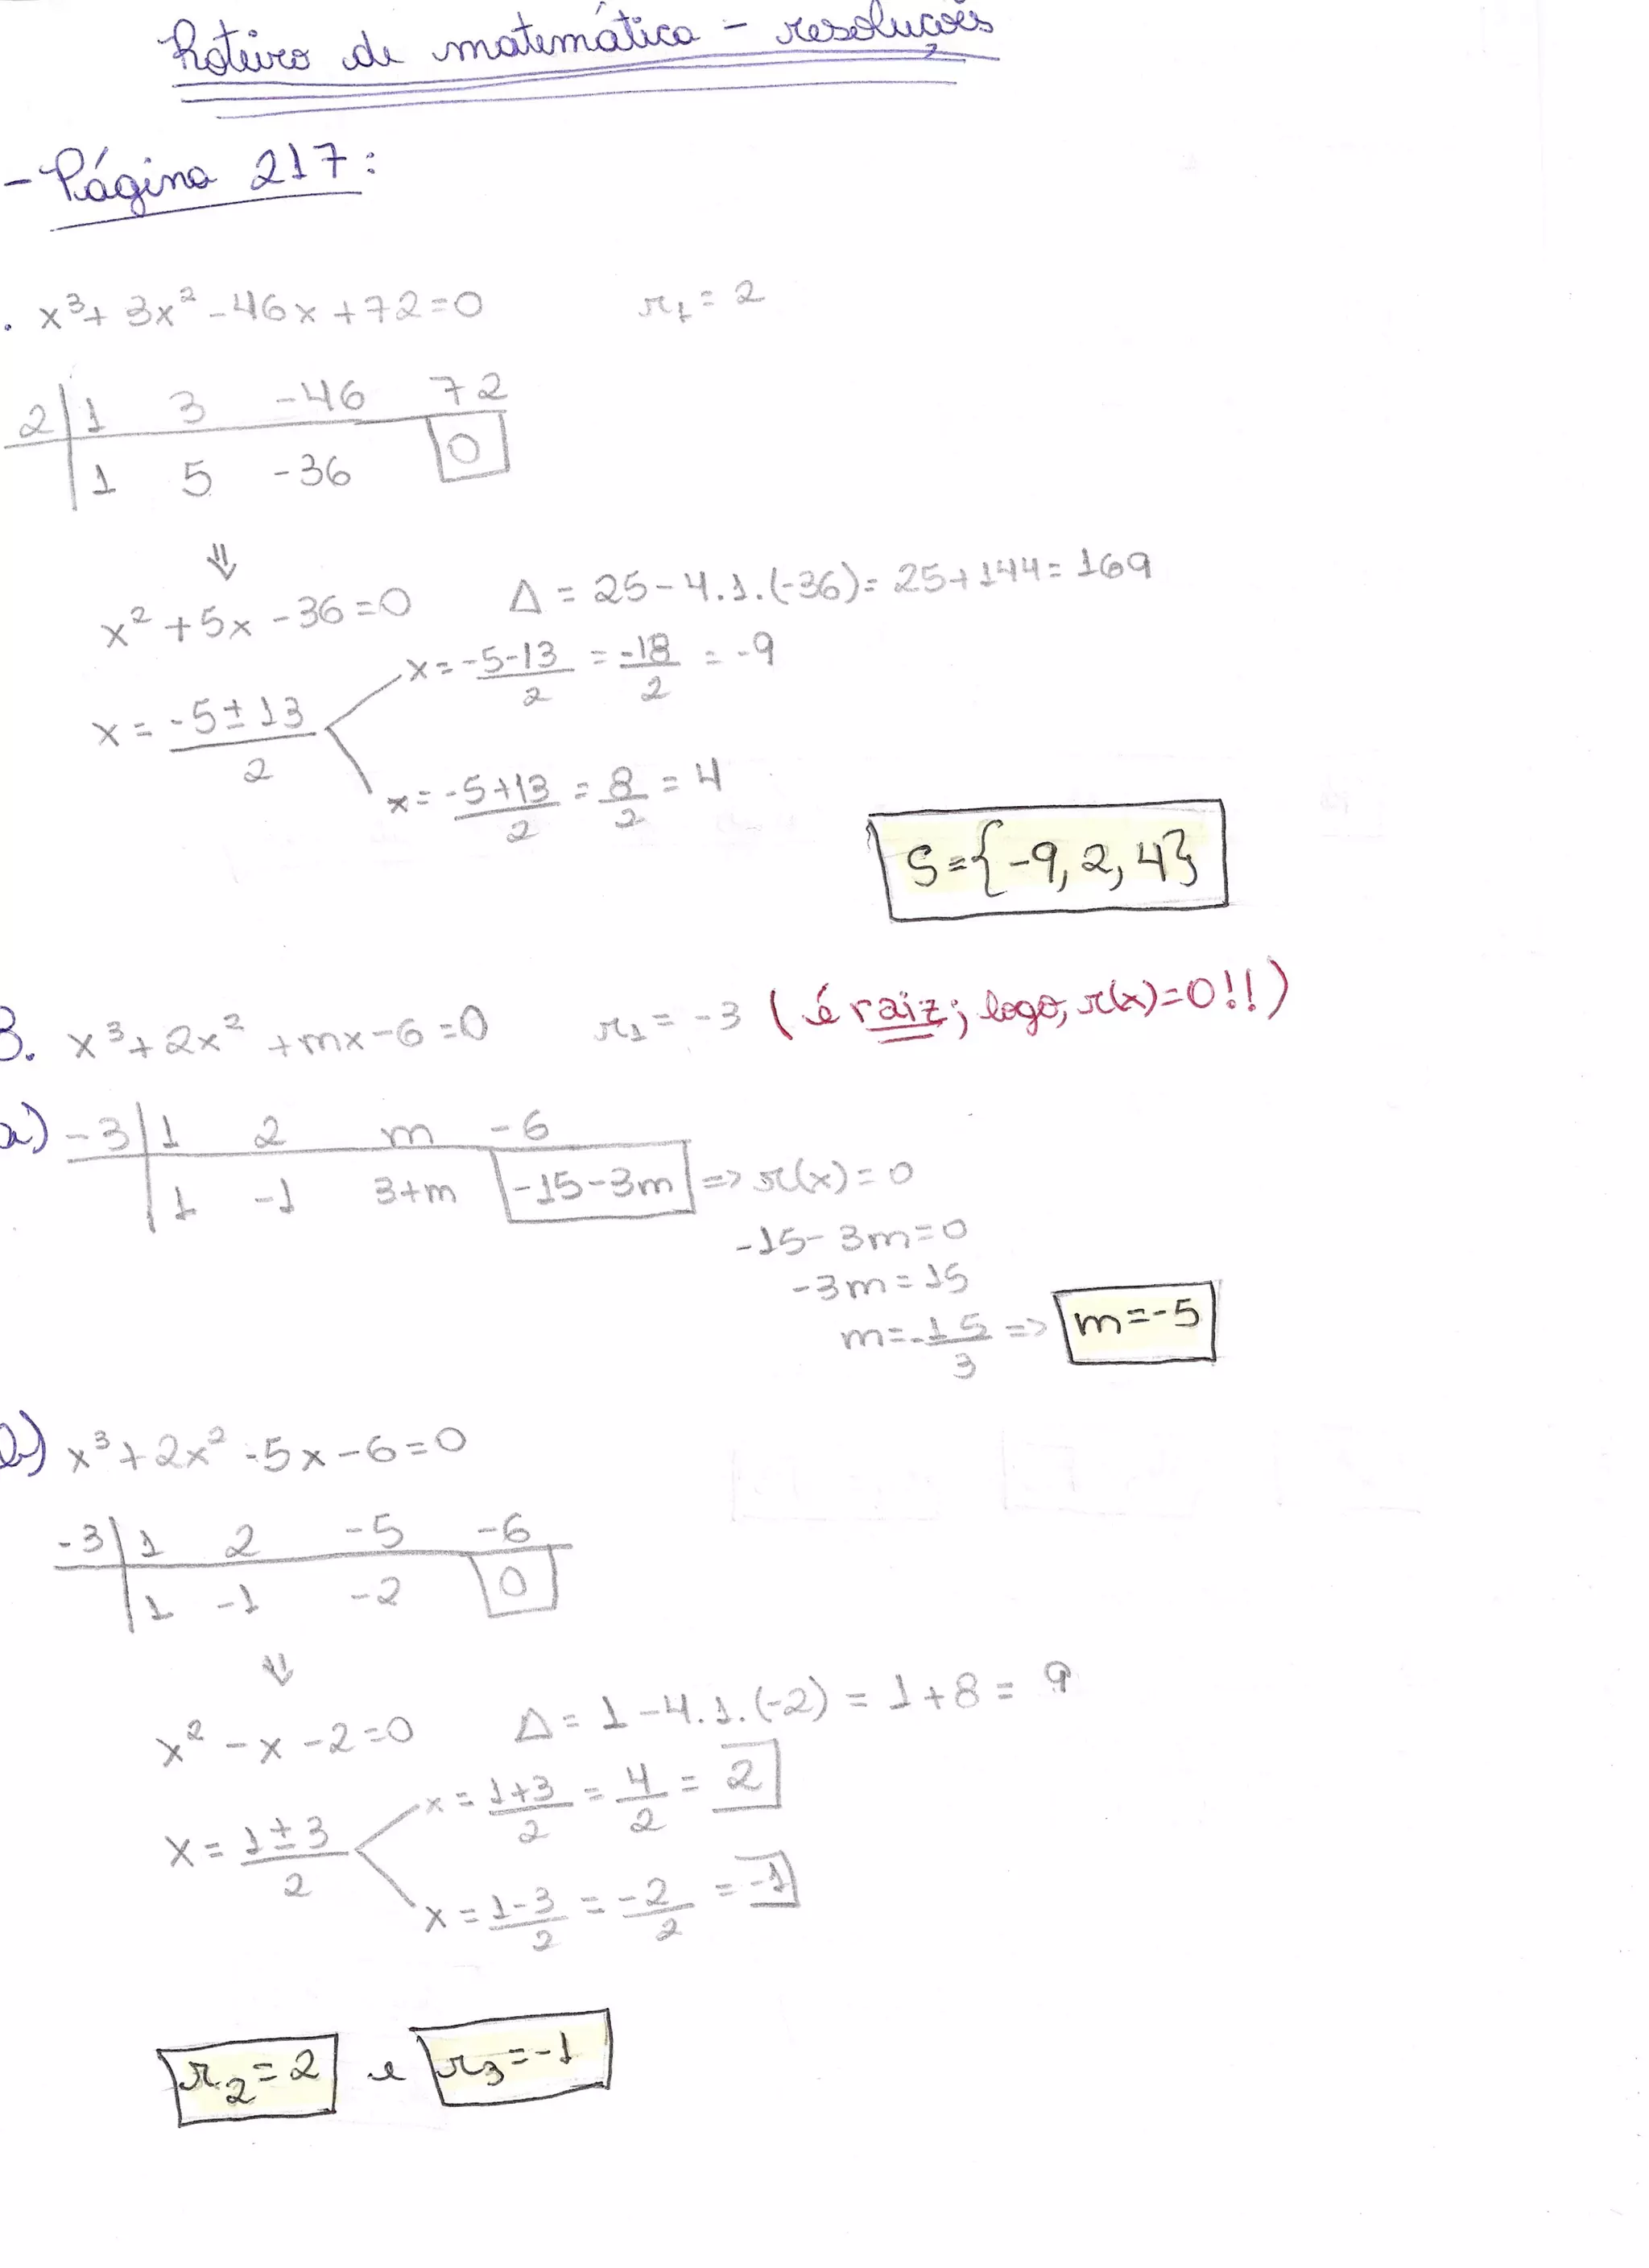 Roteiro de matemática - resoluções
- Página 217:
. x³ + 3x² - 46x + 72 = 0 r₁ = 2
2 | 1 3 -46 72
1 5 -36 0
⇓
x² + 5x - 36 = 0 Δ = 25 - 4.1.(-36) = 25 + 144 = 169
x = -5-13/2 = -18/2 = -9
x = -5±13/2
x = -5+13/2 = 8/2 = 4
S = {-9, 2, 4}
3. x³ + 2x² + mx - 6 = 0 r₁ = -3 (é raiz; logo, r(x) = 0!!)
a) -3 | 1 2 m -6
1 -1 3+m -15-3m => r(x) = 0
-15 - 3m = 0
-3m = 15
m = -15/3 => m = -5
b) x³ + 2x² - 5x - 6 = 0
-3 | 1 2 -5 -6
1 -1 -2 0
⇓
x² - x - 2 = 0 Δ = 1 - 4.1.(-2) = 1 + 8 = 9
x = 1+3/2 = 4/2 = 2
x = 1±3/2
x = 1-3/2 = -2/2 = -1
r₂ = 2 e r₃ = -1